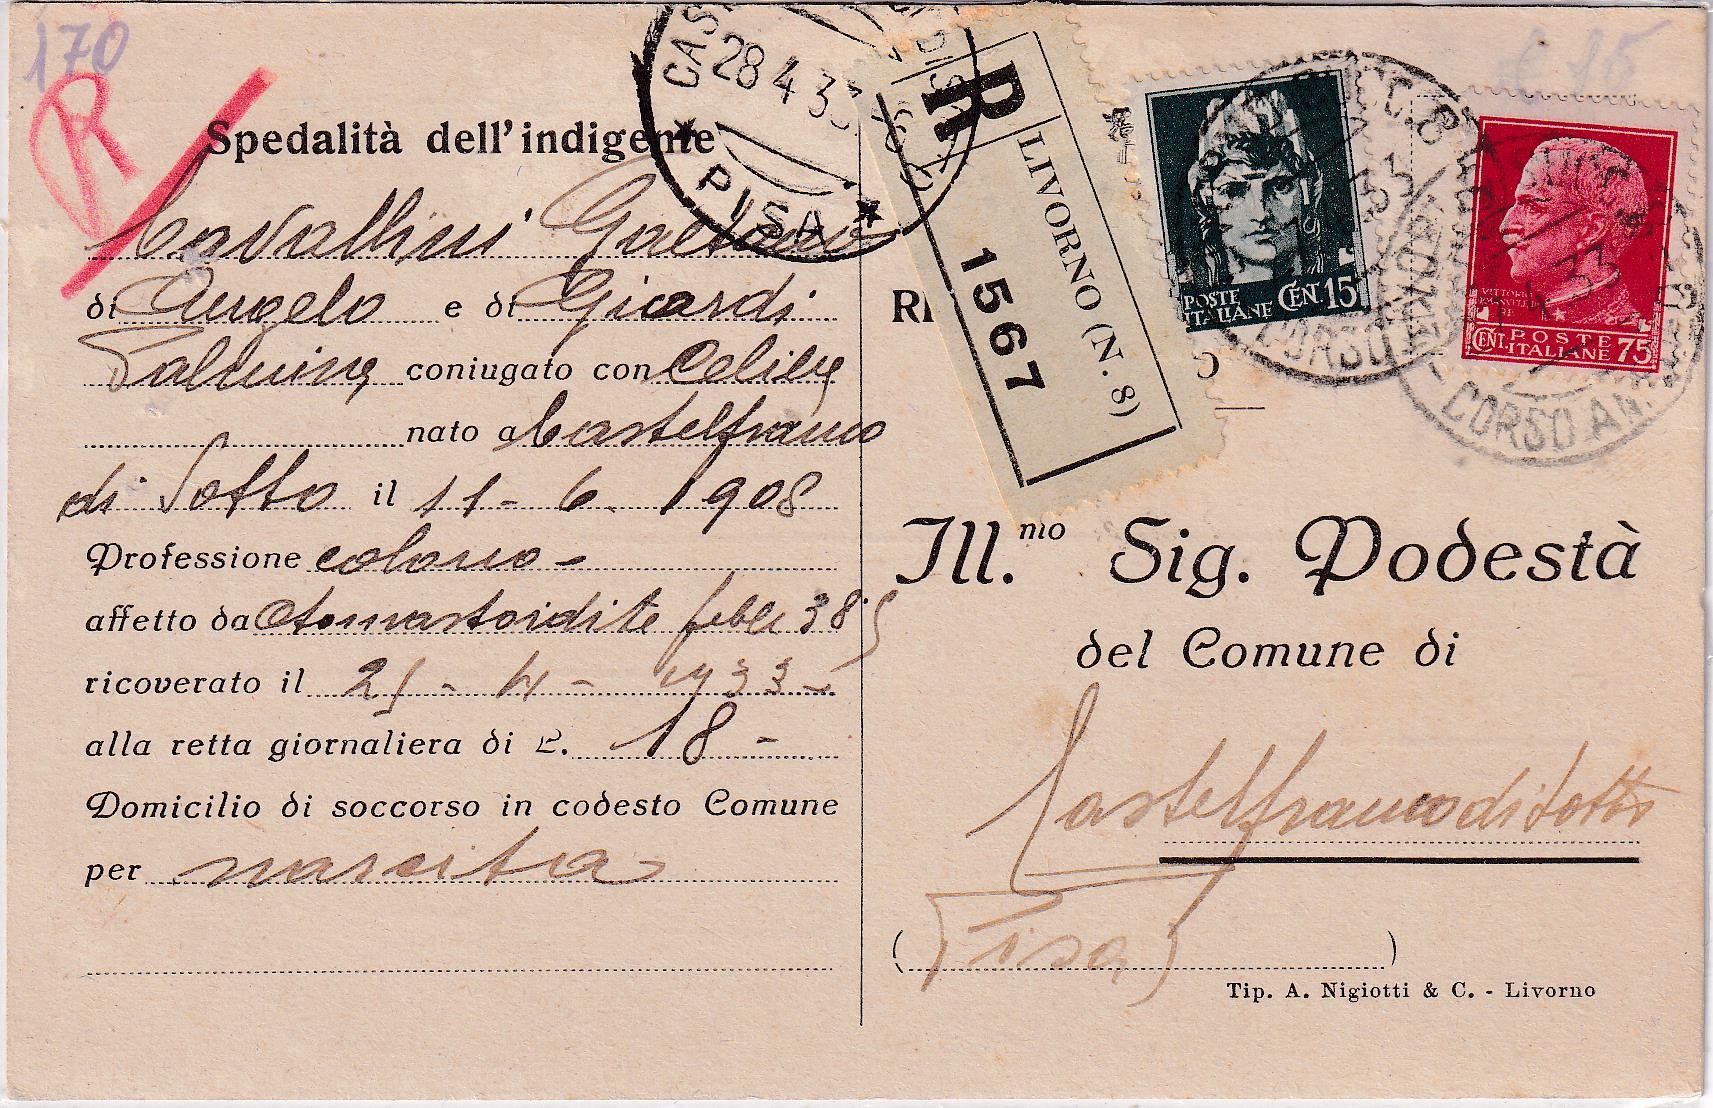 170
R
Spedalità dell'indigente
Cavallini Gaetano
di Angelo e di Giardi
Palmina coniugato con
nato a Castelfranco
di Sotto il 11-6-1908
Professione colono-
affetto da Otomastoidite febb. 38°5
ricoverato il 25-4-1933-
alla retta giornaliera di L. 18-
Domicilio di soccorso in codesto Comune
per nascita
28 4 33
PISA
R
LIVORNO (N. 8)
1567
POSTE
ITALIANE CEN. 15
CORSO
POSTE
CENT. ITALIANE 75
CORSO AM.
Ill.mo Sig. Podestà
del Comune di
Castelfranco di Sotto
(Pisa)
Tip. A. Nigiotti & C. - Livorno